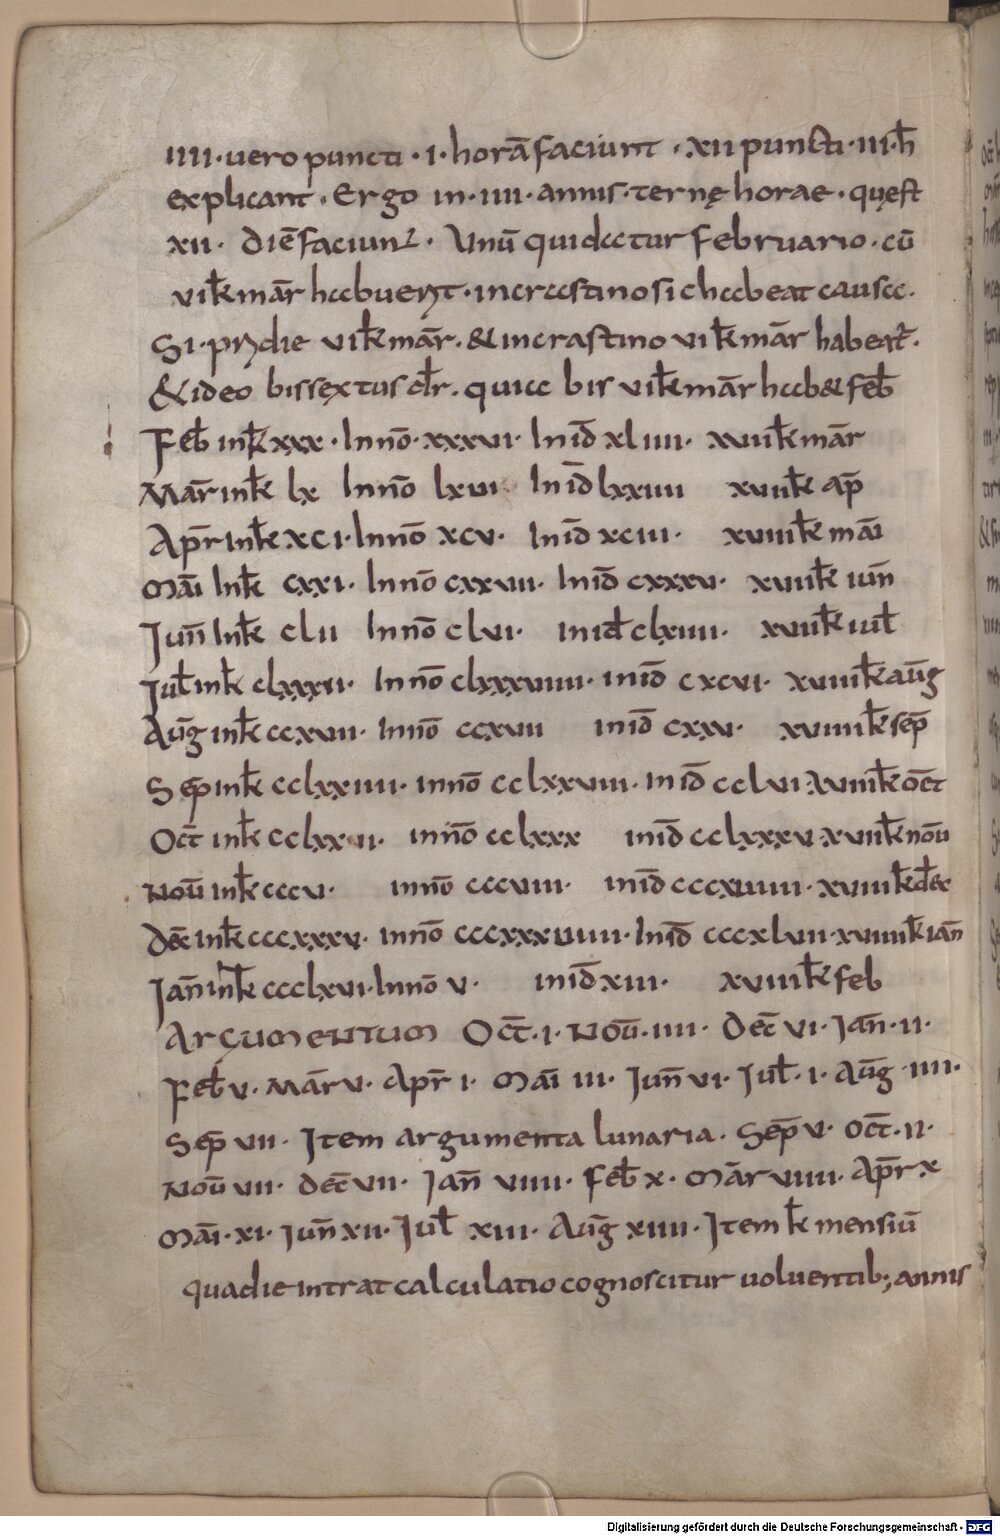 IIII · uero puncti · I · horā faciunt · XII puncti · III · h̄
explicant · Ergo in · IIII · annis · ternę horae · quęst
XII · Diē faciunt · Unū quidectur februario · cū
VI k̄ mār̄ habuerit · in crastino si c habeat causa ·
Si · prydie VI k̄ mār · & in crastino VI k̄ mār habeat ·
& ideo bissextus dr̄ · quia bis VI k̄ mār hab& feb̄
Feb̄ in k̄ XXX · In nō · XXXVI · In id̄ XLIIII · XVI k̄ mār
Mār in k̄ LX In nō LXVI In id̄ LXXIIII XVII k̄ ap̄
Apr̄ in k̄ XCI · In nō XCV · In id̄ XCIII · XVIII k̄ māi
Māi In k̄ CXXI · In nō CXXVII · In id̄ CXXXV · XVII k̄ iun̄
Iun̄ In k̄ CLII In nō CLVI · in id̄ CLXIIII · XVII k̄ iul̄
Iul̄ in k̄ CLXXXII · In nō CLXXXVIIII · in id̄ CXCVI · XVIII k̄ aūg
Aūg in k̄ CCXVII · In nō CCXVII in id̄ CXXV · XVIIII k̄ sep̄
Sep̄ in k̄ CCLXXIIII · in nō CCLXXVIII · in id̄ CCLVI · XVIII k̄ oct̄
Oct̄ in k̄ in nō CCLXXX in id̄ CCLXXXV · XVII k̄ noū
Noū in k̄ CCCV · in nō CCCVIII · in id̄ CCCXVIIII · XVIII k̄ dec̄
Dec̄ in k̄ CCCXXXV · in nō CCCXXXVIIII · In id̄ CCCXLVII · XVIIII k̄ iān
Iān in k̄ CCCLXVI · In nō V · in id̄ XIII · XVIII k̄ feb
ARGUMENTUM Oct̄ · I · Noū · IIII · Dec̄ VI · Iān · II ·
Feb̄ V · Mār V · Apr̄ I · Māi III · Iun̄ VI · Iul̄ · I · Aūg · IIII ·
Sep̄ VII · Item argumenta lunaria · Sep̄ V · Oct̄ · II ·
Noū VII · Dec̄ VII · Iān VIIII · Feb̄ X · Mār VIIII · Ap̄r X
Māi · XI · Iun̄ XII · Iul̄ XIII · Aūg XIIII · Item k̄ mensiū
qua die intrat calculatio cognoscitur uoluentib; annis
Digitalisierung gefördert durch die Deutsche Forschungsgemeinschaft - DFG